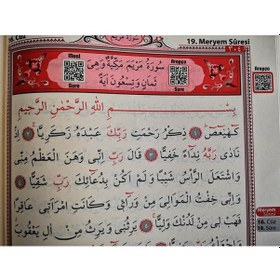 19. Meryem Sûresi
سُورَةُ مَرْيَمَ مَكِّيَّةٌ وَهِيَ
ثَمَانٍ وَتِسْعُونَ اٰيَةً
بِسْمِ اللّٰهِ الرَّحْمٰنِ الرَّحِيمِ
كٓهٰيٰعٓصٓ ﴿١﴾ ذِكْرُ رَحْمَتِ رَبِّكَ عَبْدَهُ زَكَرِيَّا ﴿٢﴾ اِذْ
نَادٰى رَبَّهُ نِدَٓاءً خَفِيًّا ﴿٣﴾ قَالَ رَبِّ اِنِّي وَهَنَ الْعَظْمُ مِنِّي
وَاشْتَعَلَ الرَّأْسُ شَيْبًا وَلَمْ اَكُنْ بِدُعَٓائِكَ رَبِّ شَقِيًّا ﴿٤﴾
وَاِنِّي خِفْتُ الْمَوَالِيَ مِنْ وَرَٓاءِي وَكَانَتِ امْرَاَتِي عَاقِرًا
فَهَبْ لِي مِنْ لَدُنْكَ وَلِيًّا ﴿٥﴾ يَرِثُنِي وَيَرِثُ مِنْ اٰلِ يَعْقُوبَ
Meryem
16. Cüz
19. Sûre